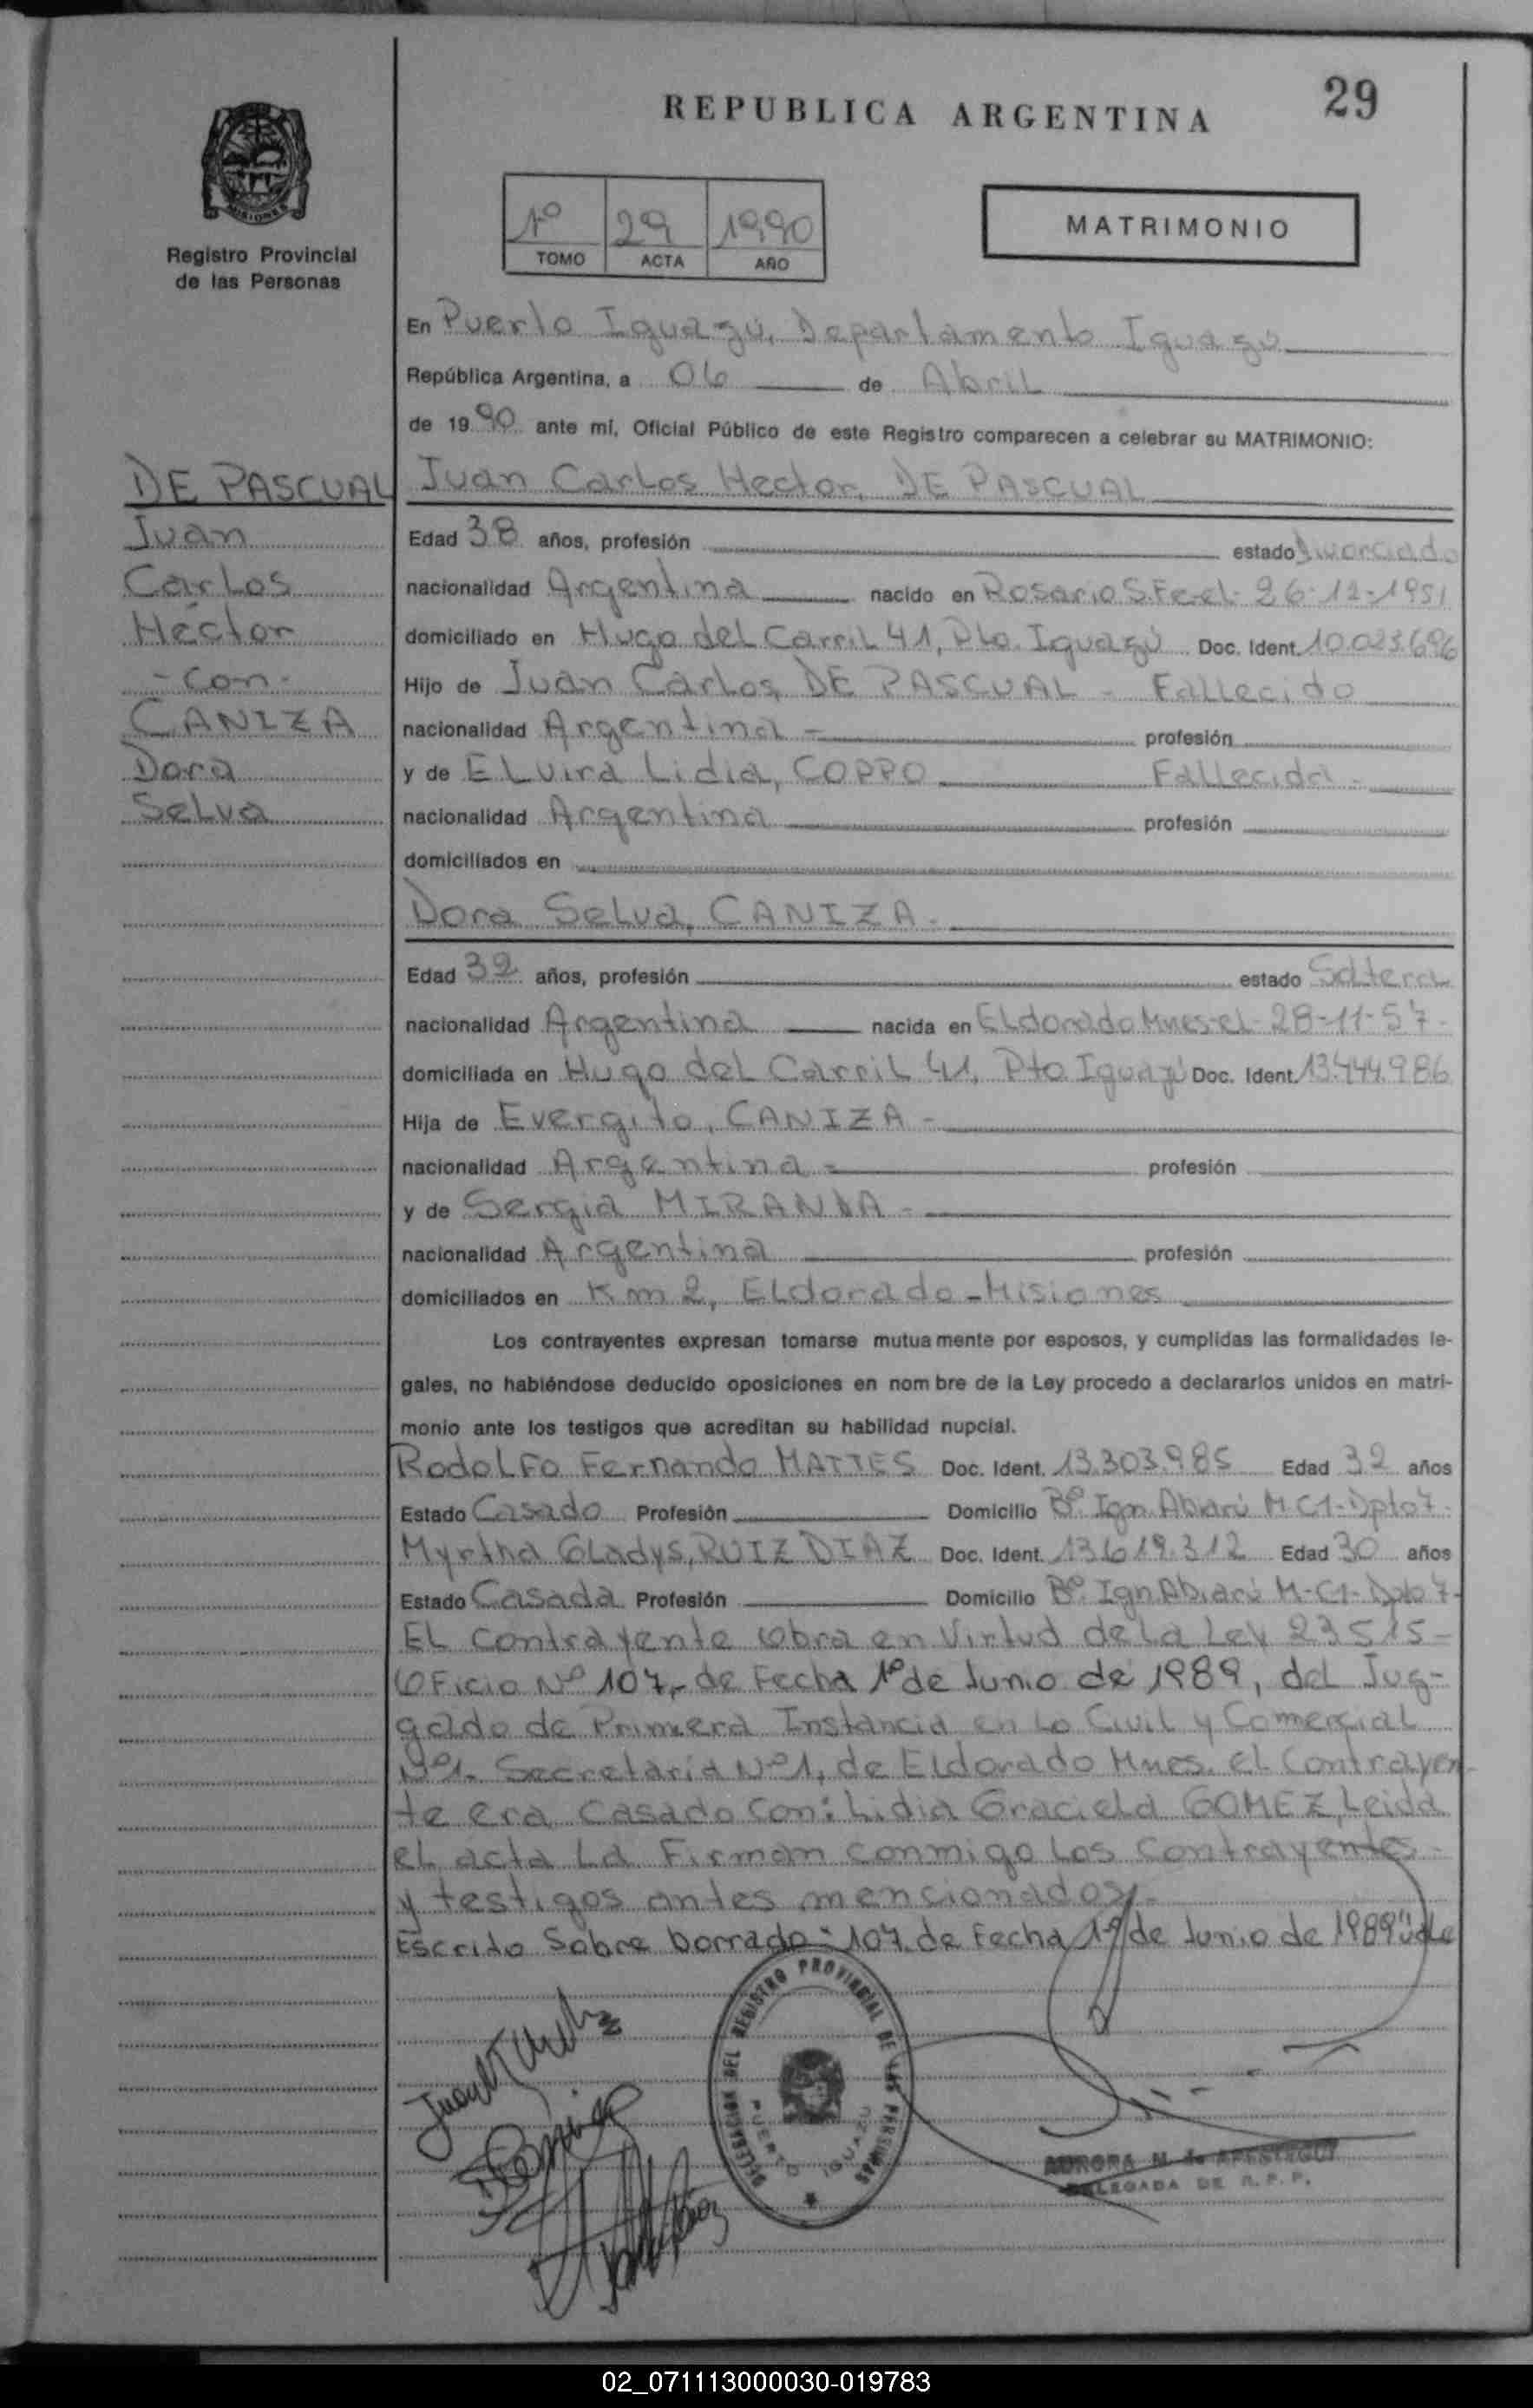 29
REPUBLICA ARGENTINA
MISIONES
Registro Provincial
de las Personas
1º 29 1990
TOMO ACTA AÑO
MATRIMONIO
En Puerto Iguazú, Departamento Iguazú
República Argentina, a 06 de Abril
de 1990 ante mí, Oficial Público de este Registro comparecen a celebrar su MATRIMONIO:
DE PASCUAL
Juan
Carlos
Héctor
-con-
CANIZA
Dora
Selva
Juan Carlos Hector, DE PASCUAL
Edad 38 años, profesión estado Divorciado
nacionalidad Argentina nacido en Rosario S.Fe-el- 26-12-1951
domiciliado en Hugo del Carril 41, Pto. Iguazú Doc. Ident. 10.023.696
Hijo de Juan Carlos, DE PASCUAL - Fallecido
nacionalidad Argentina - profesión
y de Elvira Lidia, COPPO Fallecida -
nacionalidad Argentina profesión
domiciliados en
Dora Selva, CANIZA -
Edad 32 años, profesión estado Soltera
nacionalidad Argentina nacida en Eldorado Mnes-el- 28-11-57-
domiciliada en Hugo del Carril 41, Pto Iguazú Doc. Ident. 13.444.986
Hija de Evergito, CANIZA -
nacionalidad Argentina - profesión
y de Sergia MIRANDA -
nacionalidad Argentina profesión
domiciliados en Km 2, Eldorado - Misiones
Los contrayentes expresan tomarse mutuamente por esposos, y cumplidas las formalidades le-
gales, no habiéndose deducido oposiciones en nombre de la Ley procedo a declararlos unidos en matri-
monio ante los testigos que acreditan su habilidad nupcial.
Rodolfo Fernando MATTES Doc. Ident. 13.303.985 Edad 32 años
Estado Casado Profesión Domicilio Bº. Ign. Abiarú M-C1-Dpto 7-
Myrtha Gladys, RUIZ DIAZ Doc. Ident. 13.619.312 Edad 30 años
Estado Casada Profesión Domicilio Bº. Ign Abiarú M-C1-Dpto 7-
El contrayente obra en Virtud de la Ley 23515-
Oficio Nº 107,- de Fecha 1º de Junio de 1989, del Juz-
gado de Primera Instancia en lo Civil y Comercial
Nº1- Secretaria Nº1, de Eldorado Mnes. el contrayen-
te era casado con: Lidia Graciela GOMEZ, Leida
el acta la Firman conmigo los contrayentes-
y testigos antes mencionados.-
Escrito Sobre borrado: "107, de Fecha 1º de Junio de 1989" vale
DELEGACION DEL REGISTRO PROVINCIAL DE LAS PERSONAS
PUERTO IGUAZU
AURORA M. de APESTEGUY
DELEGADA DE R. P. P.
02_071113000030-019783